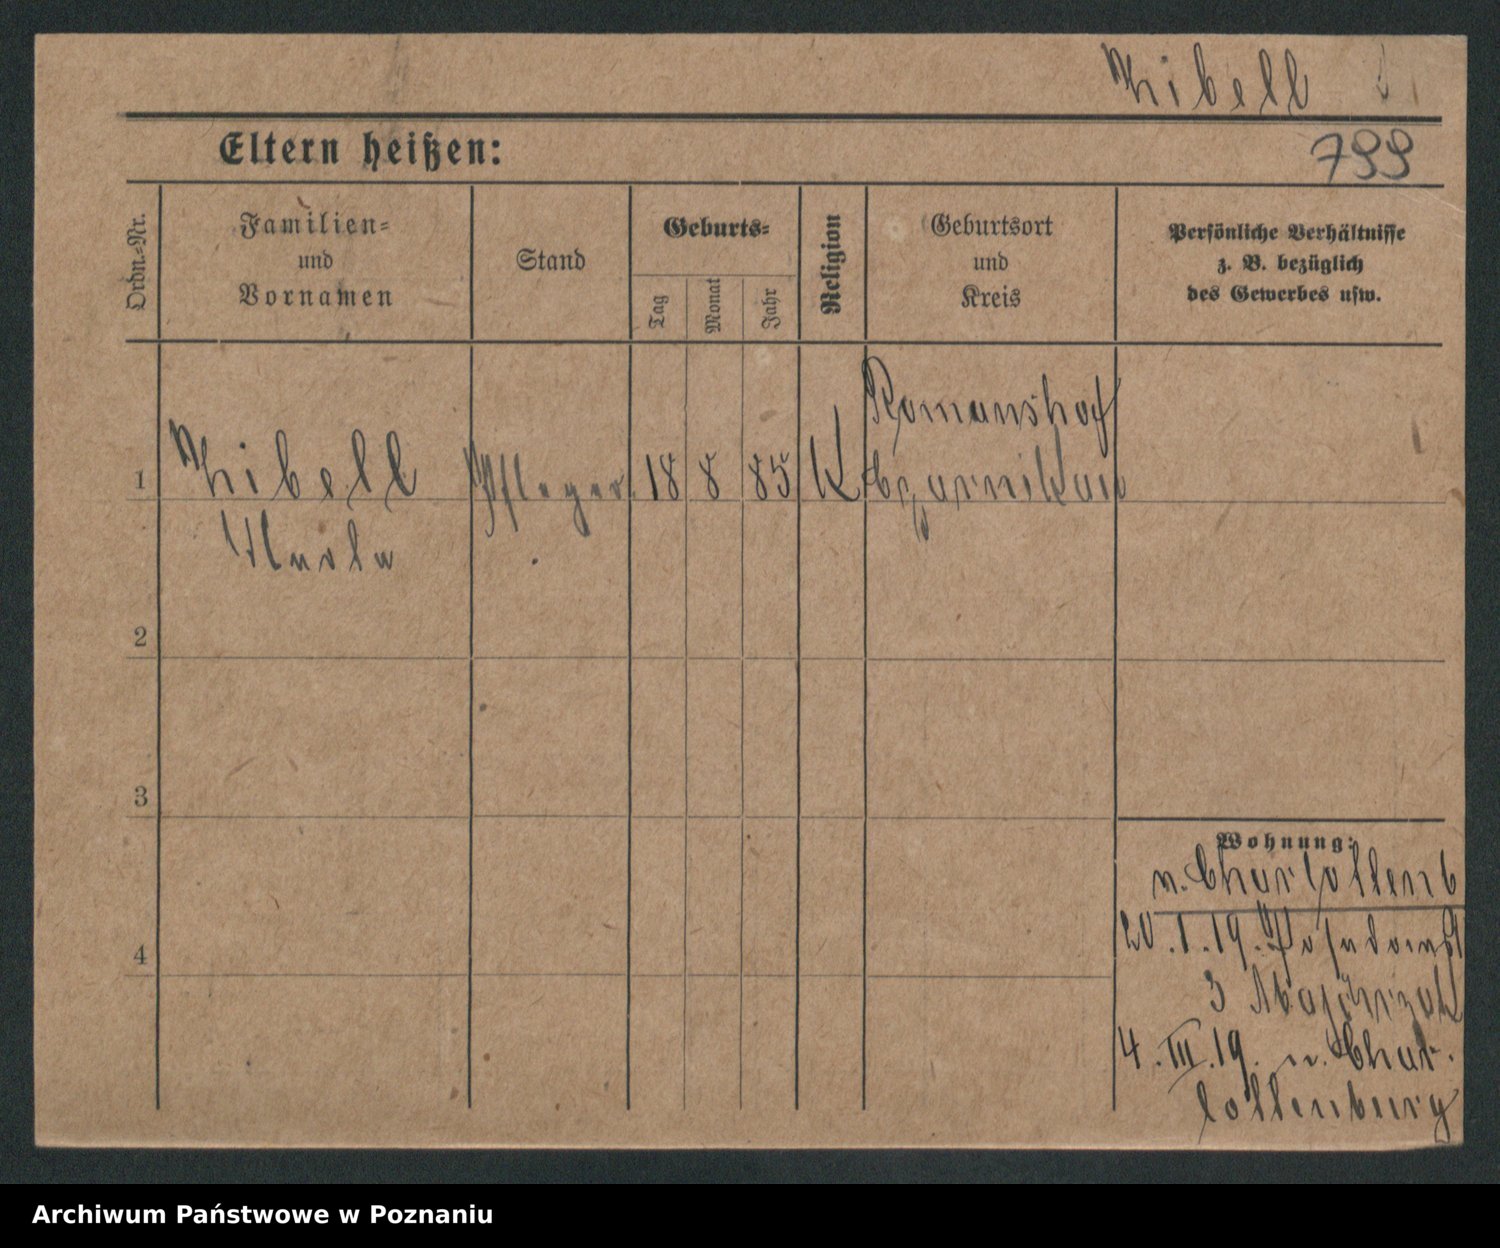 Zibell
Eltern heißen:
799
Ordn.-Nr.
Familien-
und
Vornamen
Stand
Geburts-
Tag
Monat
Jahr
Religion
Geburtsort
und
Kreis
Persönliche Verhältnisse
z. B. bezüglich
des Gewerbes usw.
1
Zibell
Pfleger.
18
8
85
K
Romanshof
Czarnikau
2
3
4
Wohnung:
n. Charlottenb
20.1.19.
3
4.III.19. n. Char-
lottenburg
Archiwum Państwowe w Poznaniu